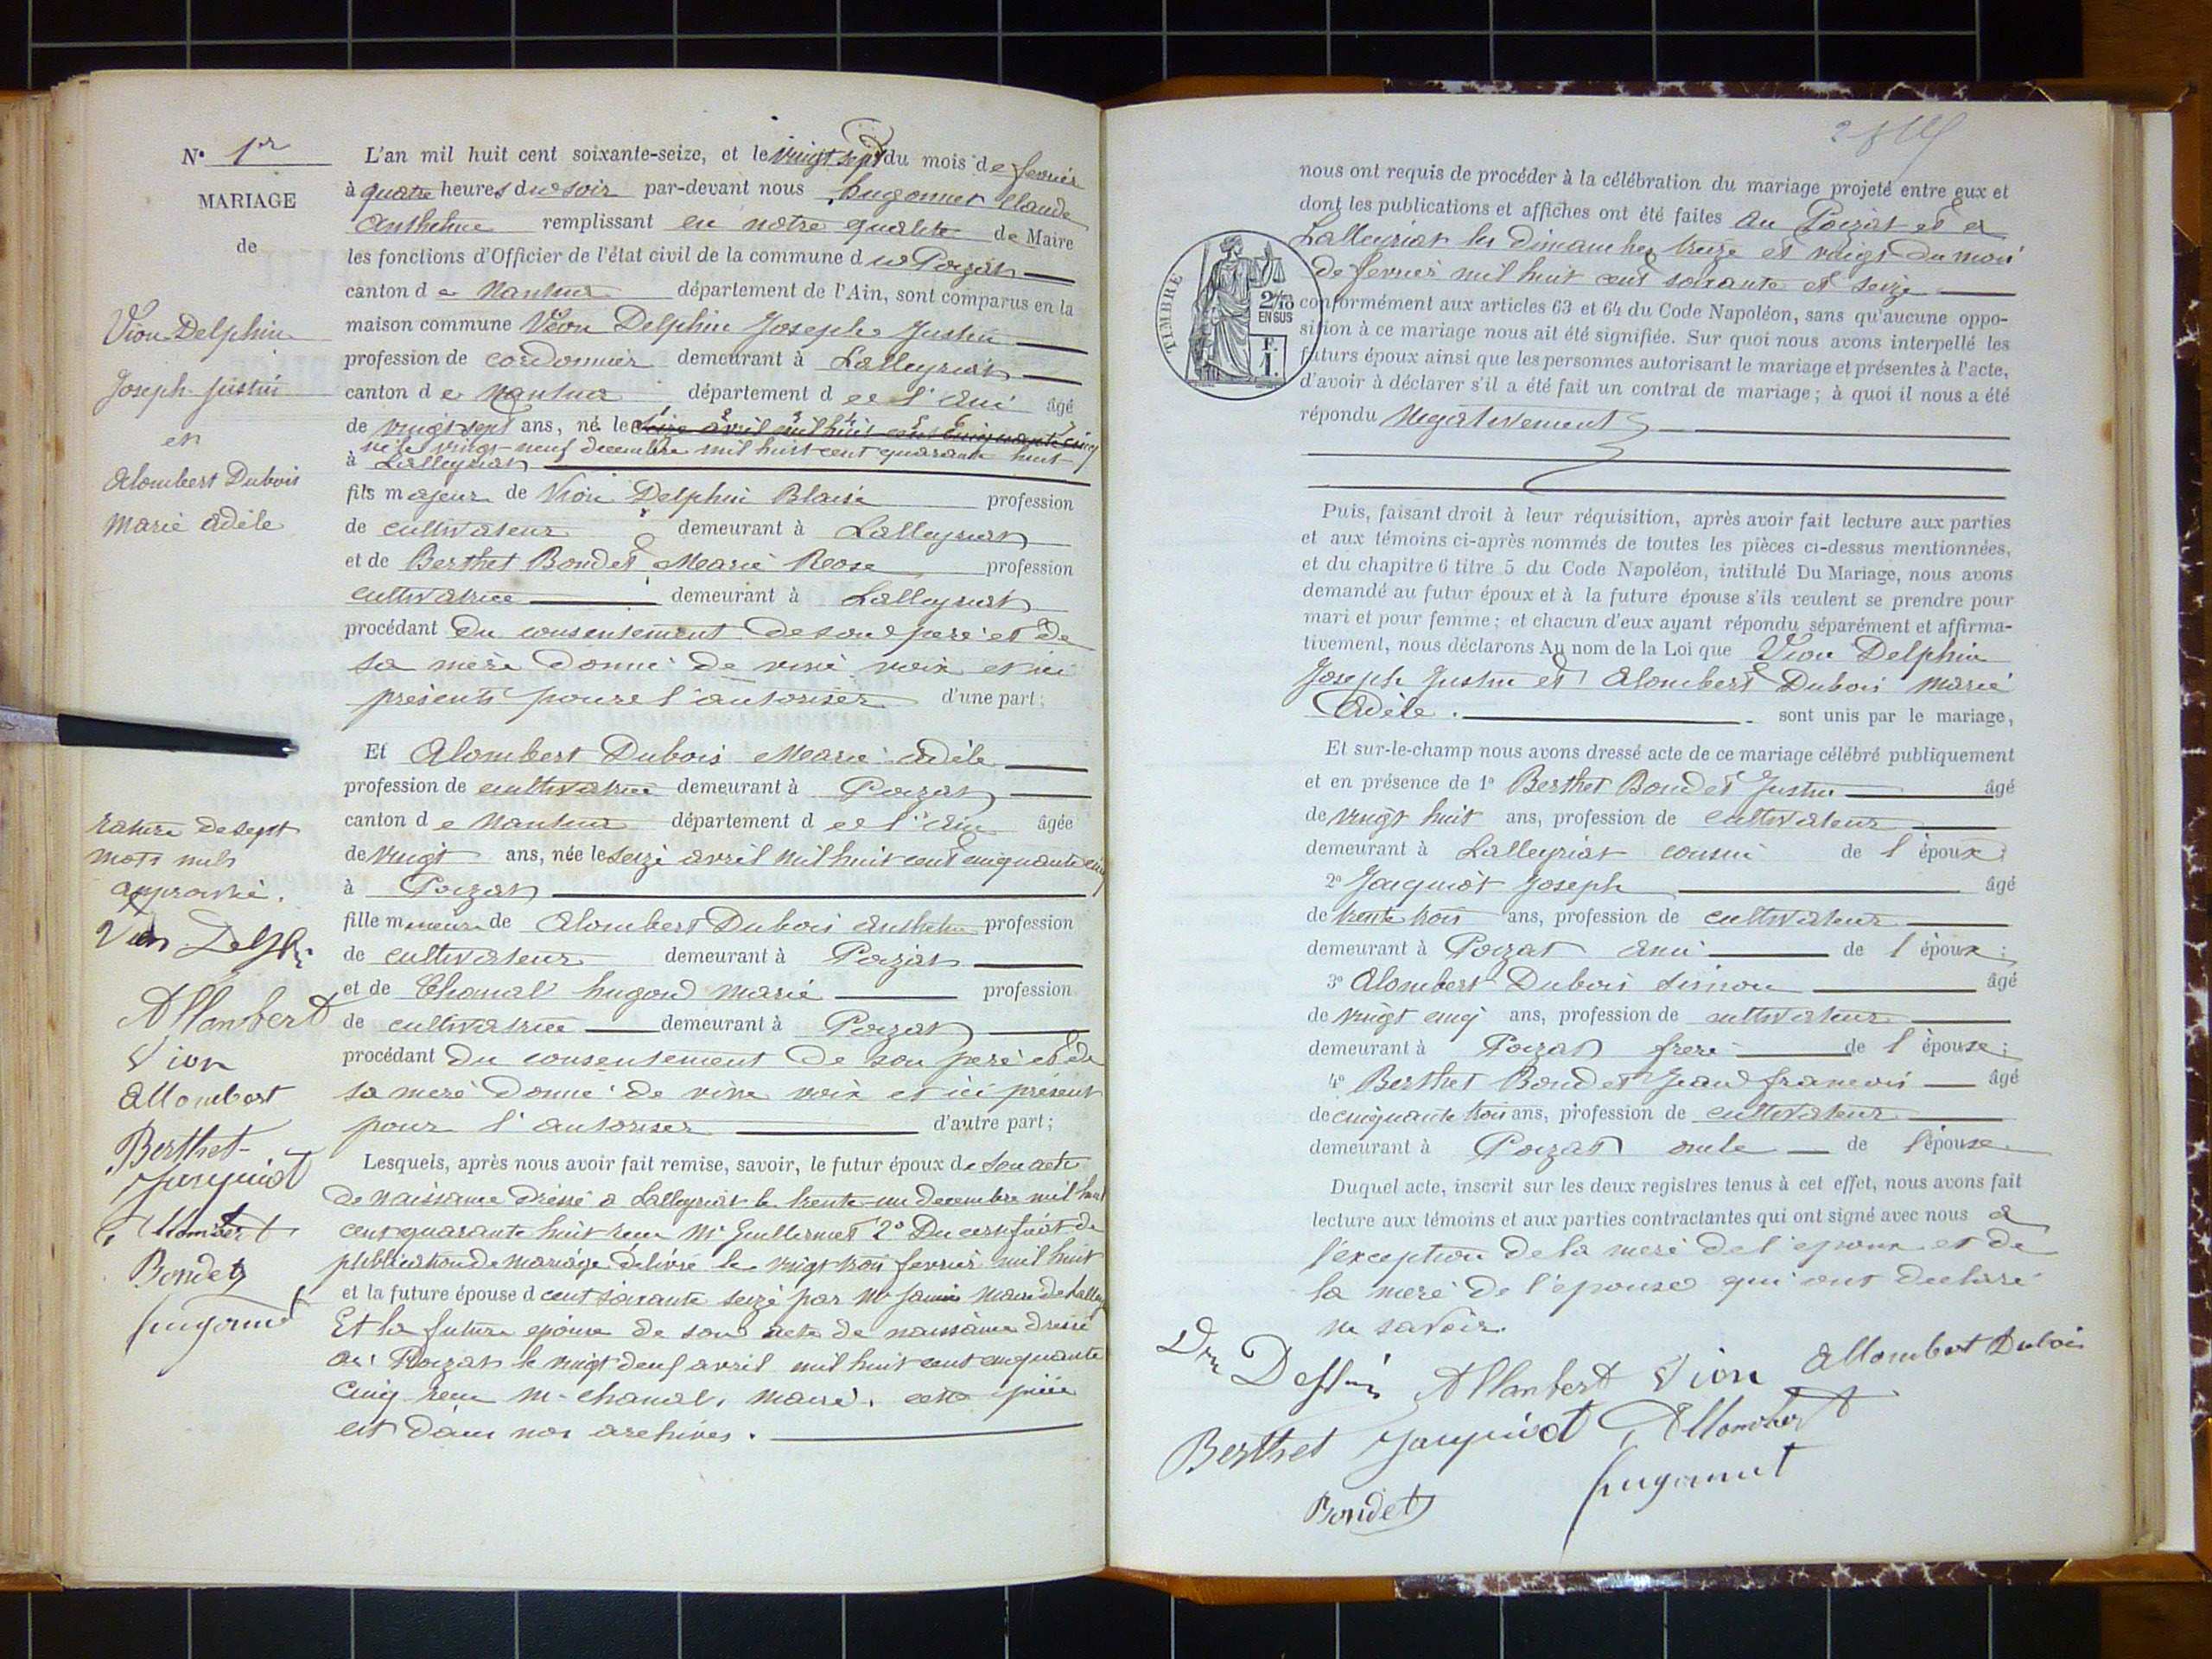 N° 1er
MARIAGE
de
Vion Delphin
Joseph Justin
et
Alombert Dubois
Marie Adèle
rature de sept
mots nuls
approuvé.
Allombert
Vion
Allombert
Berthet
Jacquiot
Allombert
Bondet
hugonnet
L'an mil huit cent soixante-seize, et le vingt sept du mois de fevrier
à quatre heures du soir par-devant nous hugonnet Claude
Anthelme remplissant en notre qualité de Maire
les fonctions d'Officier de l'état civil de la commune du Poizat
canton de Nantua département de l'Ain, sont comparus en la
maison commune Vion Delphin Joseph Justin
profession de cordonnier demeurant à Lalleyriat
canton de Nantua département de l'Ain âgé
de vingt sept ans, né le seize avril mil huit cent cinquante cinq
né le vingt-neuf decembre mil huit cent quarante huit
à Lalleyriat
fils majeur de Vion Delphin Blaise profession
de cultivateur demeurant à Lalleyriat
et de Berthet Bondet Marie Rose profession
cultivatrice demeurant à Lalleyriat
procédant Du consentement de son pere et de
sa mère donné de vive voix et ici
présents pour l'autoriser d'une part;
Et Alombert Dubois Marie Adèle
profession de cultivatrice demeurant à Poizat
canton de Nantua département de l'Ain âgée
de vingt ans, née le seize avril mil huit cent cinquante cinq
à Poizat
fille mineure de Alombert Dubois Anthelme profession
de cultivateur demeurant à Poizat
et de Chanal hugon Marie profession
de cultivatrice demeurant à Poizat
procédant Du consentement de son pere et de
sa mere donné de vive voix et ici présent
pour l'autoriser d'autre part;
Lesquels, après nous avoir fait remise, savoir, le futur époux de son acte
de naissance dressé a Lalleyriat le trente-un decembre mil huit
cent quarante huit reçu Mr Guillermet 2° Du certificat de
publication de mariage délivré le vingt trois fevrier mil huit
et la future épouse d cent soixante seize par Mr maire de Lalley
Et la future epouse de son acte de naissance dressé
au Poizat le vingt deux avril mil huit cent cinquante
cinq reçu m. chanal, maire. cette pièce
est dans nos archives.
nous ont requis de procéder à la célébration du mariage projeté entre eux et
dont les publications et affiches ont été faites au Poizat et a
Lalleyriat les dimanches treize et vingt du mois
de fevrier mil huit cent soixante et seize
TIMBRE
2/10
EN SUS
F.
1.
conformément aux articles 63 et 64 du Code Napoléon, sans qu'aucune oppo-
sition à ce mariage nous ait été signifiée. Sur quoi nous avons interpellé les
futurs époux ainsi que les personnes autorisant le mariage et présentes à l'acte,
d'avoir à déclarer s'il a été fait un contrat de mariage; à quoi il nous a été
répondu Négativement
Puis, faisant droit à leur réquisition, après avoir fait lecture aux parties
et aux témoins ci-après nommés de toutes les pièces ci-dessus mentionnées,
et du chapitre 6 titre 5 du Code Napoléon, intitulé Du Mariage, nous avons
demandé au futur époux et à la future épouse s'ils veulent se prendre pour
mari et pour femme; et chacun d'eux ayant répondu séparément et affirma-
tivement, nous déclarons Au nom de la Loi que Vion Delphin
Joseph Justin et Alombert Dubois Marie
Adèle. sont unis par le mariage,
Et sur-le-champ nous avons dressé acte de ce mariage célébré publiquement
et en présence de 1° Berthet Bondet Justin âgé
de vingt huit ans, profession de cultivateur
demeurant à Lalleyriat cousin de l'époux
2° Jacquiot Joseph âgé
de trente trois ans, profession de cultivateur
demeurant à Poizat ami de l'époux;
3° Alombert Dubois Simon âgé
de vingt cinq ans, profession de cultivateur
demeurant à Poizat frere de l'épouse;
4° Berthet Bondet Jean françois âgé
de cinquante trois ans, profession de cultivateur
demeurant à Poizat oncle de l'épouse
Duquel acte, inscrit sur les deux registres tenus à cet effet, nous avons fait
lecture aux témoins et aux parties contractantes qui ont signé avec nous a
l'exception de la mere de l'epoux et de
la mere de l'épouse qui ont declaré
ne savoir.
Allombert Vion Allombert Dubois
Berthet Jacquiot Allombert
Bondet hugonnet